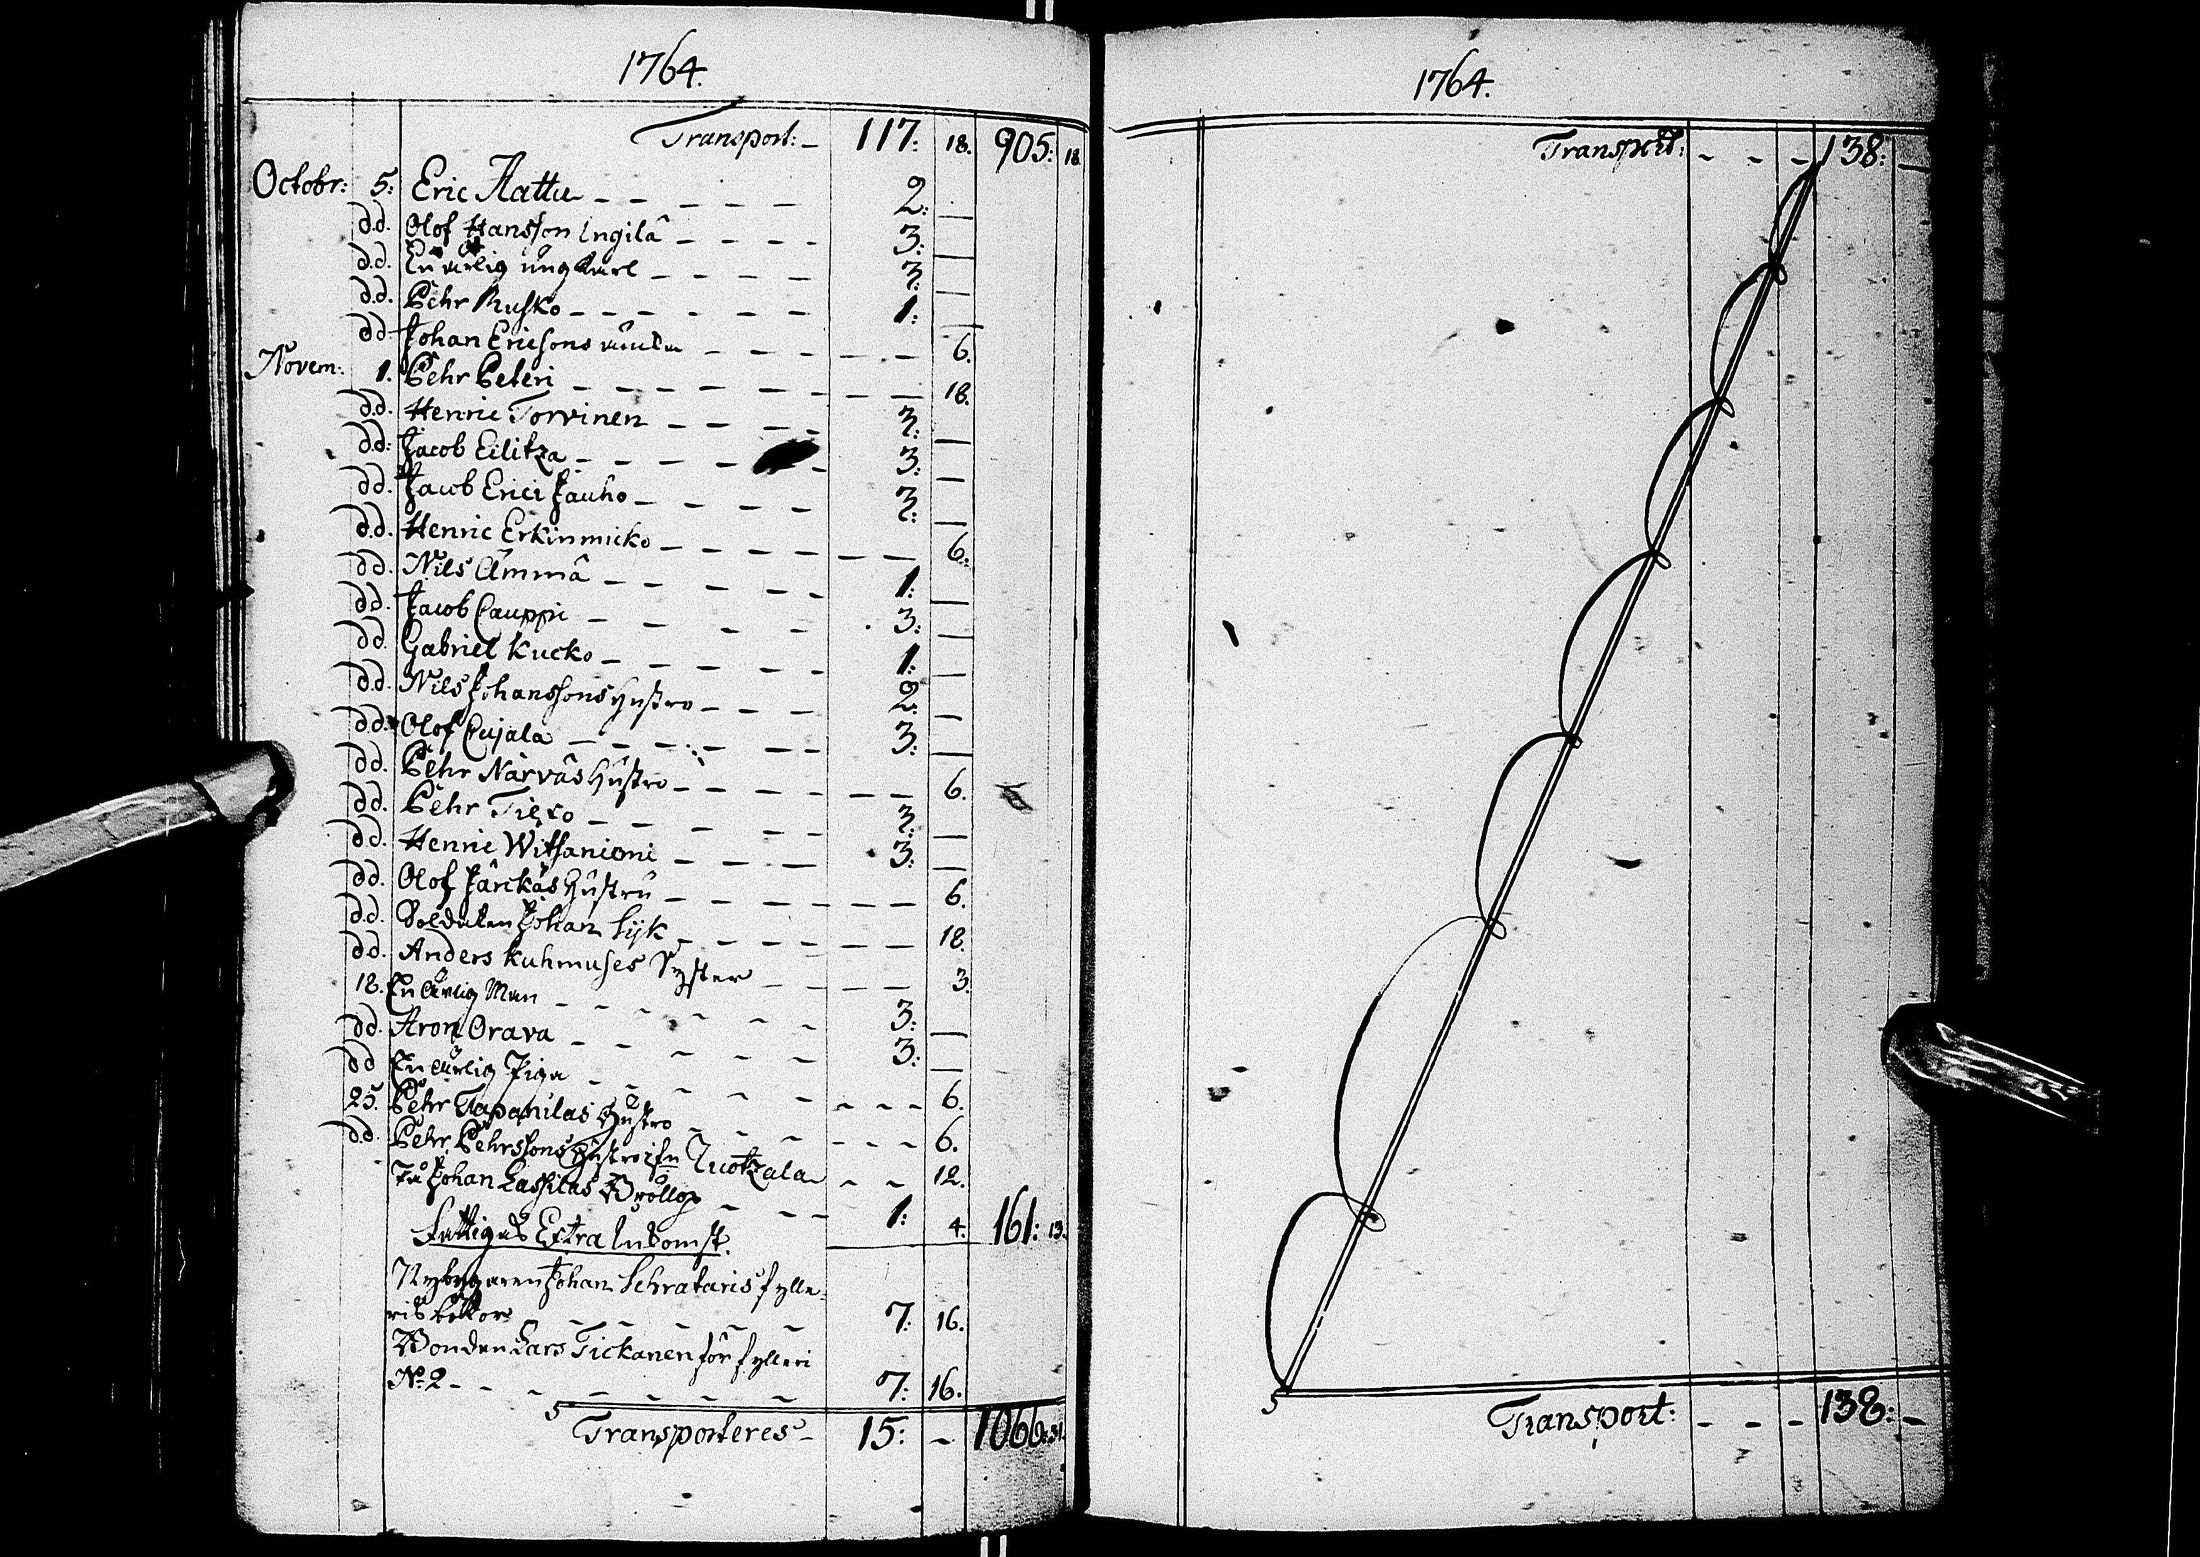 1764.
Transport: 117: 18. 905: 18.
Octobr: 5: Eric Aattu 2:
d.d. Olof Hansson Ingilä 3:
d.d. En ärlig ung karl 3.
d.d. Pehr Musko 1:
dd Johan Ericsons 6.
Novem: 1. Pehr Peteri 18.
d.d. Henric Torvinen 3:
dd: Jacob Eilitza 3:
dd. Jacob Erici Jauho 3:
d.d. Henric Erkinmicko 6.
dd. Nils Ämmä 1:
dd. Jacob Cauppi 3:
dd. Gabriel Kucko 1:
d.d. Nils Johanssons Hustro 2:
dd. Olof Cujala 3:
dd. Pehr Närväs Hustro 6.
dd. Pehr Tiexo 3:
dd. Henric Witsanieni 3:
dd. Olof Järckäs Hustru 6.
d.d. Soldaten Johan Sijk 18.
dd. Anders Kuhmuses Syster 3.
18. En ärlig Man 3:
dd. Aron Orava 3:
dd En ärlig Piga 6.
25. Pehr Tapanilas Hustro 6.
dd. Pehr Pehrssons Hustro ifn Zuotzala 12.
På Johan Lassilas Bröllop 1: 4. 161: 13.
Fattigas Extra Inkomst.
Nybyggaren Johan Sehrataris fylle-
ris böttor 7: 16.
Bonden Lars Tickanen för fylleri
N:2 7: 16.
Transporteres 15: 1066: 31.
1764.
Transport: 138:
Transport: 138: